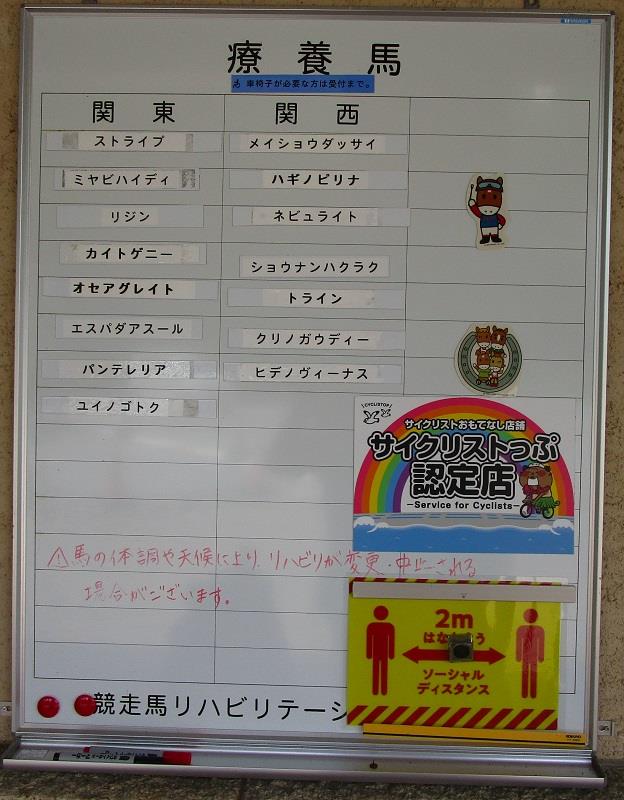 療養馬
車椅子が必要な方は受付まで。
関東 関西
ストライブ メイショウダッサイ
ミヤビハイディ ハギノピリナ
リジン ネビュライト
カイトゲニー ショウナンハクラク
オセアグレイト トライン
エスパダアスール クリノガウディー
パンテレリア ヒデノヴィーナス
ユイノゴトク
CYCLISTOP
サイクリストおもてなし店舗
サイクリストっぷ
認定店
-Service for Cyclists-
⚠馬の体調や天候により、リハビリが変更・中止される
場合がございます。
2m
ソーシャル
ディスタンス
競走馬リハビリテーシ